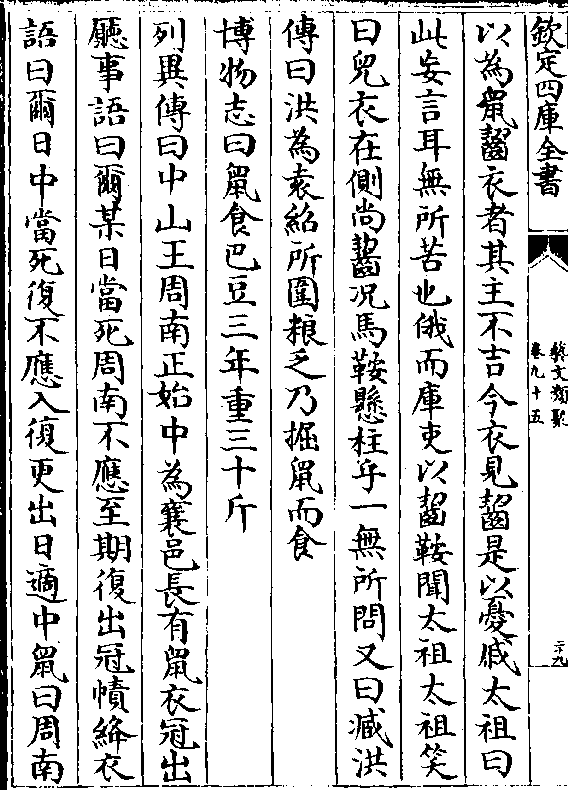 欽定四庫全書
藝文類聚
卷九十五
二十九
以為鼠齧衣者其主不吉今衣見齧是以憂戚太祖曰
此妄言耳無所苦也俄而庫吏以齧鞍聞太祖太祖笑
曰兒衣在側尚齧况馬鞍懸柱乎一無所問又曰臧洪
傳曰洪為袁紹所圍粮乏乃掘鼠而食
博物志曰鼠食巴豆三年重三十斤
列異傳曰中山王周南正始中為襄邑長有鼠衣冠出
廳事語曰爾某日當死周南不應至期復出冠幘絳衣
語曰爾日中當死復不應入復更出日適中鼠曰周南